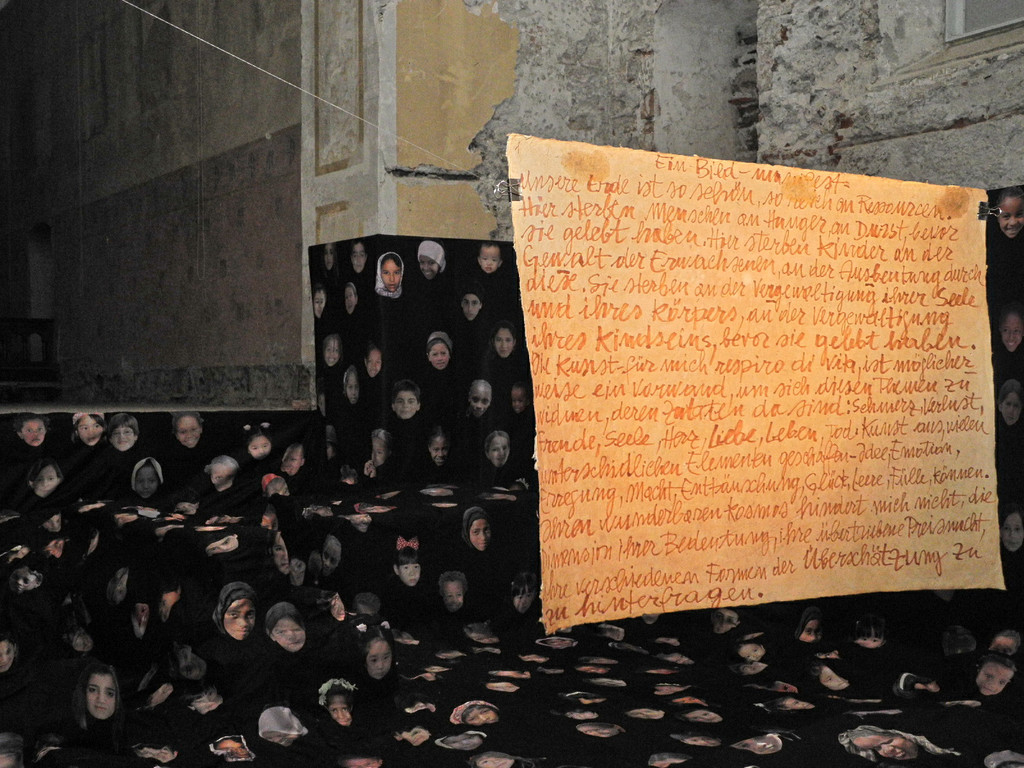 Ein Bild-manifest-
Unsere Erde ist so schön, so reich an Ressourcen.
Hier sterben Menschen an Hunger, an Durst, bevor
sie gelebt haben. Hier sterben Kinder an der
Gewalt der Erwachsenen, an der Ausbeutung durch
diese. Sie sterben an der Vergewaltigung ihrer Seele
und ihres Körpers, an der Vergewaltigung
ihres Kindseins, bevor sie gelebt haben.
Die Kunst-für mich respiro di vita, ist möglicher
weise ein Vorwand, um sich diesen Themen zu
widmen, deren Zutaten da sind: Schmerz, Verlust,
Freude, Seele, Herz, Liebe, Leben, Tod. Kunst aus vielen
unterschiedlichen Elementen geschaffen-Idee, Emotion,
Erregung, Macht, Enttäuschung, Glück, Leere, Fülle können.
Ihren wunderbaren Kosmos hindert mich nicht, die
Dimension ihrer Bedeutung, ihre übertriebene Preismacht,
ihre verschiedenen Formen der Überschätzung zu
zu hinterfragen.